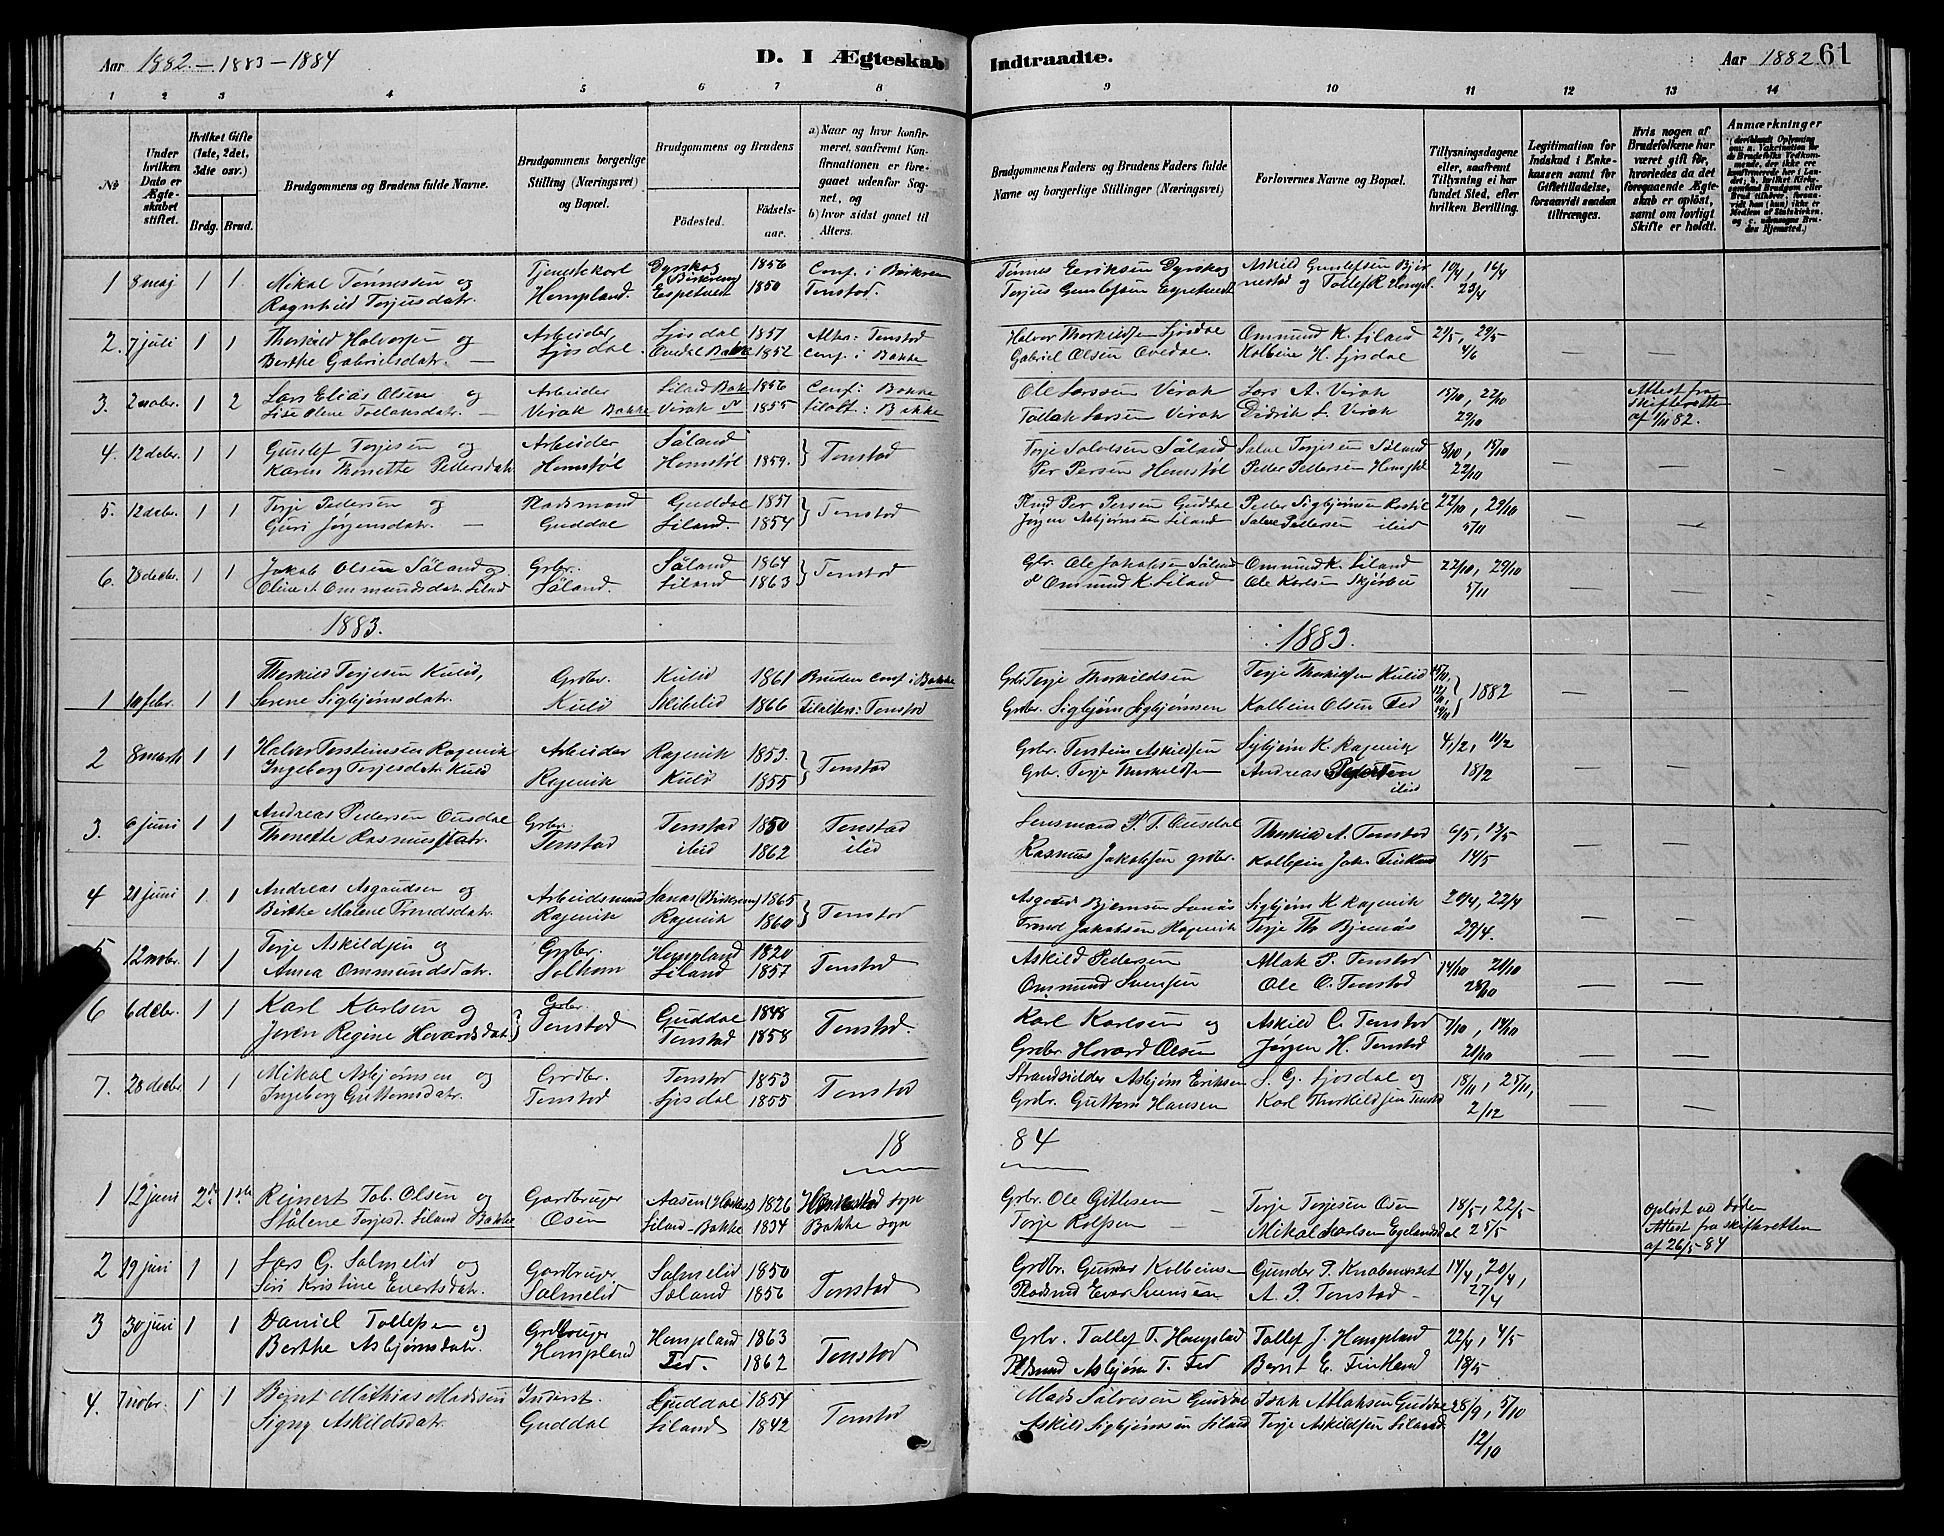 Aar 1882 - 1883 - 1884
D. I Ægteskab Indtraadte.
Aar 1882 61
1 2 3 4 5 6 7 8 9 10 11 12 13 14
No
Under hvilken Dato er Ægteskabet stiftet.
Hvilket Gifte (1ste, 2det, 3dte osv.)
Brdg. Brud.
Brudgommens og Brudens fulde Navne.
Brudgommens borgerlige Stilling (Næringsvei) og Bopæl.
Brudgommens og Brudens
Födested. Födselsaar.
a) Naar og hvor konfirmeret, saafremt Konfirmationen er foregaaet udenfor Sognet, og
b) hvor sidst gaaet til Alters.
Brudgommens Faders og Brudens Faders fulde Navne og borgerlige Stillinger (Næringsvei)
Forlovernes Navne og Bopæl.
Tillysningsdagene eller, saafremt Tillysning ei har fundet Sted, efter hvilken Bevilling.
Legitimation for Indskud i Enkekassen samt for Giftetilladelse, forsaavidt saadan tiltrænges.
Hvis nogen af Brudefolkene har været gift før, hvorledes da det foregaaende Ægteskab er opløst, samt om lovligt Skifte er holdt.
Anmærkninger
1 8 maj 1 1 Mikal Tønnessen og Tjenestekarl Dyrskog 1856 Conf. i Birkrem Tønnes Eeriksen Dyrskog Askild Gunlefsen Bjør 10/4, 16/4
Ragnhild Torjusdatr. Hompland. Birkrem Espetveit 1850 Tonstad. Torjus Gunlefsen Espetveit nestad og Tollef R. Hompl. 23/4
2. 7 juli 1 1 Thorkild Halvorsen og Arbeider Ljosdal 1857 Alter: Tonstad Halvor Thorkildsen Ljosdal Ommund K. Liland 21/5, 29/5
Berthe Gabrielsdatr. Ljosdal Ovedal Bakke 1852 Conf. i Bakke Gabriel Olsen Ovedal. Kolbein H. Ljosdal 4/6 — —
3. 2 nobr. 1 2 Lars Elias Olsen og Arbeider Liland Bak 1856 Conf: Bakke Ole Larssen Virak Lars A. Virak 15/10, 22/10 Attest fra
Lise Olene Tollaksdatr. Virak Bakke Virak 1855 til alt: Bakke Tollak Larsen Virak Didrik L. Virak 29/10 skifteretten af 1/11 82.
4. 12 debr. 1 1 Gunlef Torjesen og Arbeider Såland Torje Salvesen Såland Salve Torjesen Såland 8/10, 15/10
Karen Thonette Pedersdatr Homstøl Homstøl 1859. Tonstad Per Persen Homstøl Peder Pedersen Homstøl 22/10 — —
5. 12 debr. 1 1 Torje Pedersen og Pladsmand Guddal 1851 Plmd Per Persen Guddal Peder Sigbjørnsen 22/10, 29/10
Guri Jørgensdatr. Guddal Liland. 1854 Tonstad Jørgen Asbjørnsen Liland Salve Pedersen ibid 5/11 — —
6. 28 decbr. 1 1 Jakob Olsen Såland og Grbr. Såland 1864 Gbr. Ole Jakobsen Såland Ommund K. Liland 22/10, 29/10
Oline A. Ommundsdatr. Liland Såland. Liland 1863 Tonstad Ommund K. Liland Ole Karlsen 5/11 — —
1883. 1883.
1 10 febr. 1 1 Thorkild Torjesen Kulid, Grbr. Kulid 1861 Bruden conf. i Bakke Grbr. Torje Thorkildsen Torje Thorkildsen Kulid
Serene Sigbjørnsdatr. Kulid Skibelid 1866 Til alters: Tonstad Grbr. Sigbjørn Sigbjørnsen Kolbein Olsen Fed 1882 — —
2 8 marts 1 1 Halvor Torsteinsen Ragevik Arbeider Ragevik 1853. Grbr. Torstein Askildsen Sigbjørn K. Ragevik 4/2, 11/2
Ingeborg Torjesdatr Kulid Ragevik Kulid 1855 Tonstad Grbr. Torje Thorkildsen Andreas Pedersen ibid 18/2 — —
3. 6 juni 1 1 Andreas Pedersen Ousdal Grbr. Tonstad 1850 Tonstad Lensmand P. T. Ousdal Thorkild A. Tonstad 6/5, 13/5
Thonette Rasmusdatr. Tonstad ibid 1862 ibid Rasmus Jakobsen grdbr. Kolbein Jak. Finkland 14/5 — —
4 21 juni 1 1 Andreas Asgautsen og Arbeidsmand Lanas (Birkrem) 1865 Asgaut Bjørnsen Lanås Sigbjørn K. Ragevik 20/4, 22/4
Berthe Malene Trondsdatr. Ragevik Ragevik 1860 Tonstad Trond Jakobsen Ragevik Torje Th. Bjønås 29/4. — —
5 12 nobr. 1 1 Torje Askildsen og Grdbr. Hompland 1820 Askild Pedersen Atlak P. Tonstad 14/10 21/10
Anna Ommundsdatr. Solhom Liland 1857 Tonstad Ommund Svensen Ole O. Tonstad 28/10 — —
6 6 debr. 1 1 Karl Karlsen og Grbr. Guddal 1848 Karl Karlsen og Askild O. Tonstad 7/10, 14/10
Joren Regine Hovardsdatr. Tonstad Tonstad 1858 Tonstad. Grdbr. Hovard Olsen Jørgen H. Tonstad 21/10 — —
7. 28 decbr. 1 1 Mikal Asbjørnsen og Grdbr. Tonstad 1853 Strandsidder Asbjørn Eriksen S. G. Ljosdal og 18/11, 25/11,
Ingeborg Guttormsdatr. Tonstad Ljosdal 1855 Tonstad Grdbr. Guttorm Hansen Karl Thorkildsen Tonstad 2/12 — —
18 84
1 12 juni 2de 1ste Reinert Tob. Olsen og Gardbruger Aasen 1826 sogn Grbr. Ole Gitlesen Torje Torjesen Osen 18/5, 22/5 opløst ved døden
Stålene Torjesd. Liland Bakke Osen Liland-Bakke 1834 Bakke sogn Torje Rolfsen Mikal Karlsen Egelandsdal 25/5 Attest fra skifteretten af 26/5-84
2 19 juni 1 1 Lars G. Salmelid og Gardbruger Salmelid 1850 Grdbr. Gunder Kolbeinsen Gunder P. Knabenreset 14/4, 20/4,
Siri Kristine Evertsdatr. Salmelid Søland 1856 Tonstad Pladsmd Ever Svensen A. P. Tonstad 27/4
3 30 juni 1 1 Daniel Tollefsen og Grdbruger Hompland 1863 Grbr. Tollef T. Hompland Tollef J. Hompland 22/4, 4/5
Berthe Asbjørnsdatr. Hompland Fed. 1862 Tonstad Pldsmd Asbjørn T. Fed Bernt E. Finkland 18/5
4. 7 nobr. 1 1 Bernt Mathias Madssen Inderst Guddal 1854 Mads Salvesen Guddal Isak Atlaksen Guddal 28/9, 5/10
Signy Askildsdatr. Guddal Liland 1842 Tonstad Askild Sigbjørnsen Liland Torje Askildsen Liland 12/10